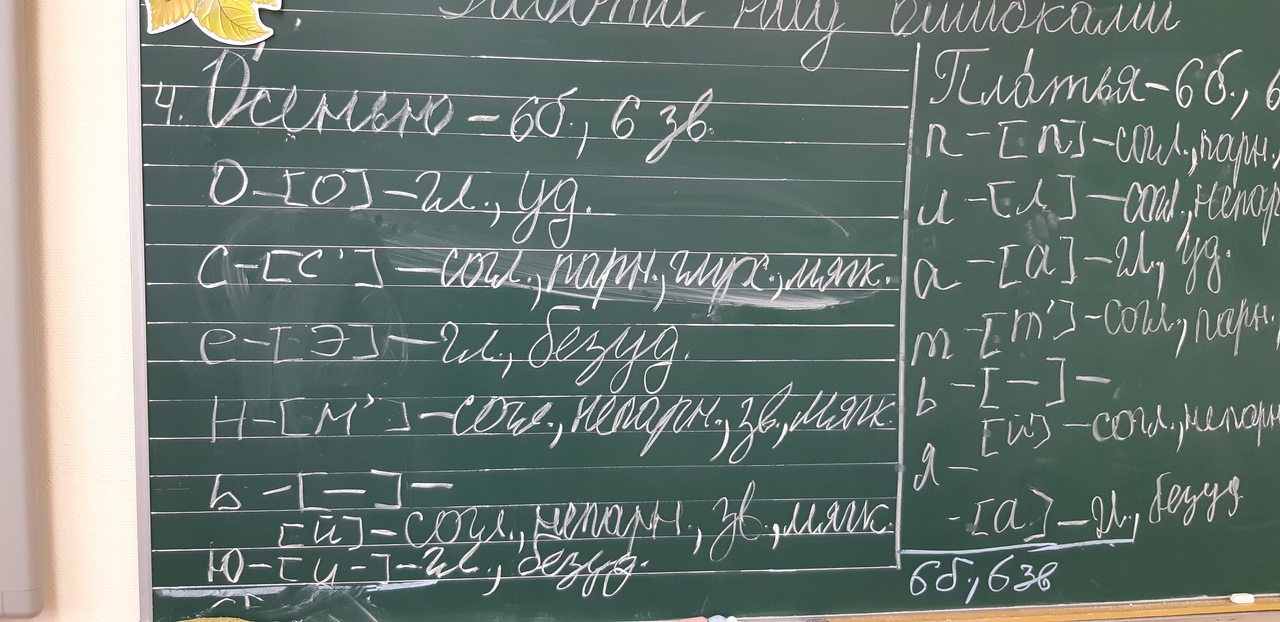 Работа над ошибками
4. Осенью – 6б., 6 зв.
О – [О] – гл., уд.
С – [С'] – согл., парн., глух., мягк.
е – [Э] – гл., безуд.
Н – [Н'] – согл., непарн., зв., мягк.
ь – [–] –
[й] – согл., непарн., зв., мягк.
Ю – [у -] – гл., безуд.
Платья – 6б., 6
п – [п] – согл., парн.,
л – [л] – согл., непар
а – [а] – гл., уд.
т – [т'] – согл., парн.,
ь – [–] –
[й] – согл., непарн
я –
– [а] – гл., безуд
6б., 6зв